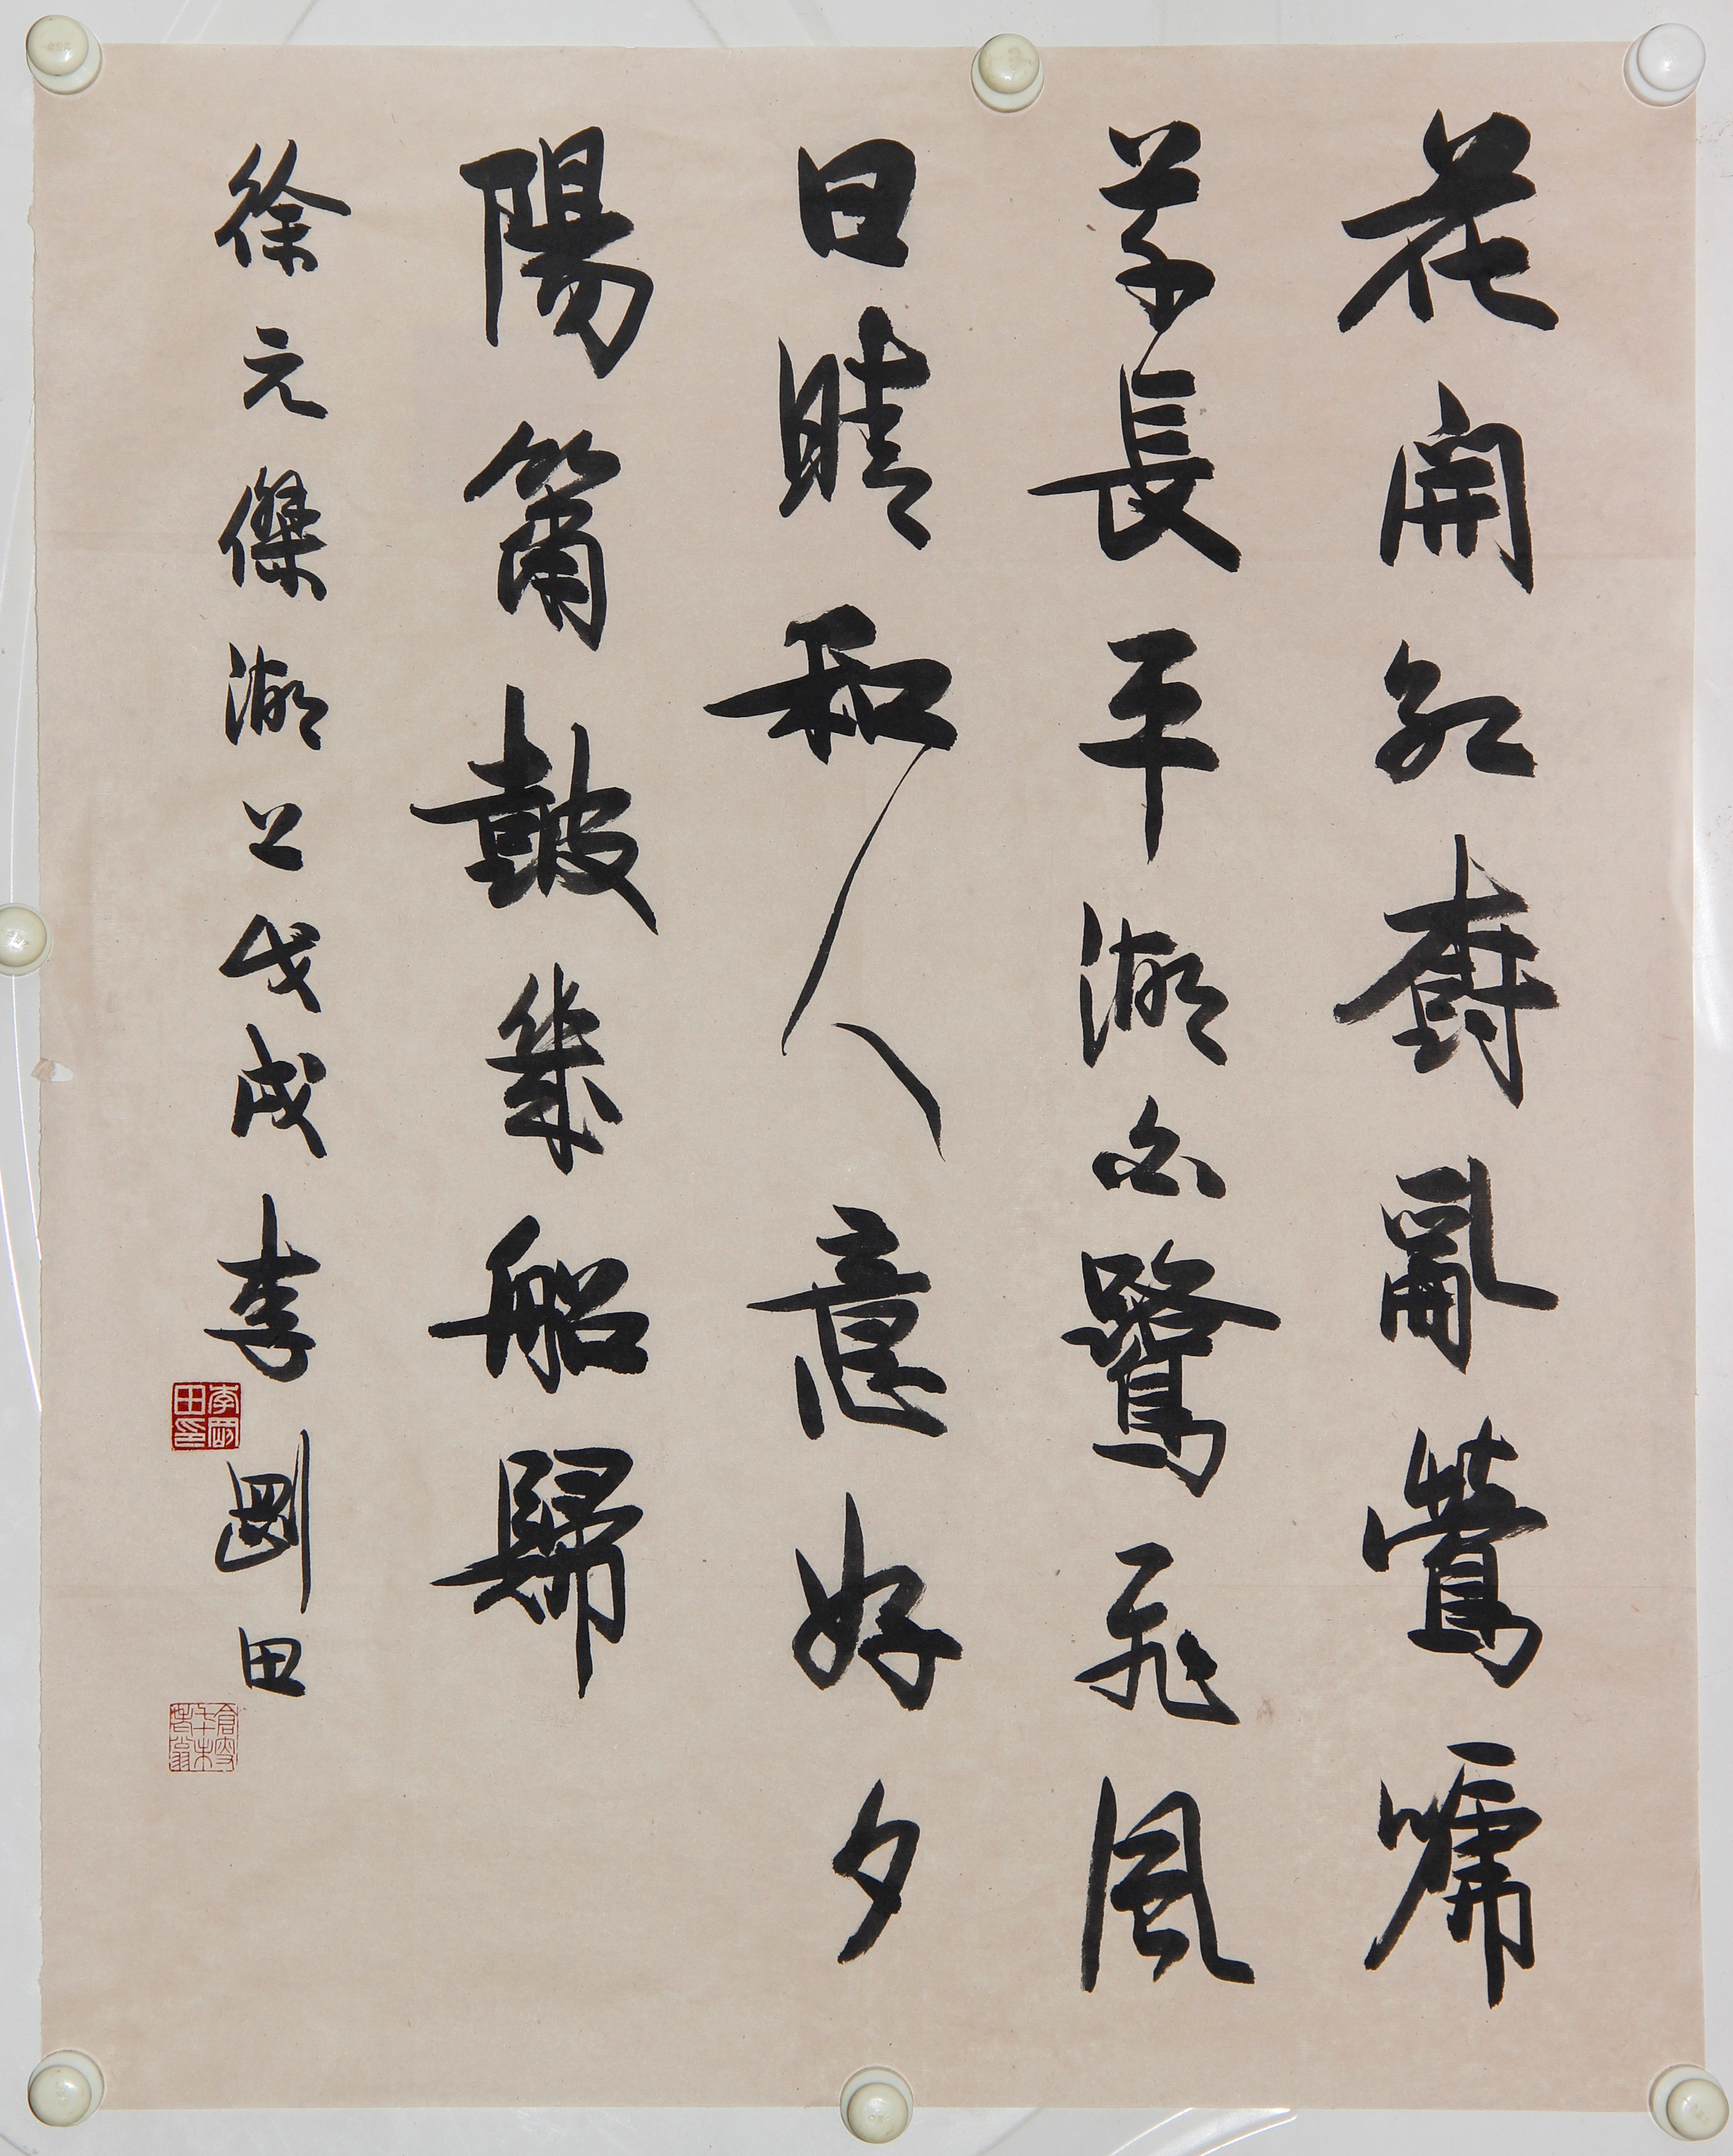 花開紅樹亂鶯啼
草長平湖白鷺飛風
日晴和人意好夕
陽簫鼓幾船歸
徐元傑湖上戊戌李剛田
李剛田印